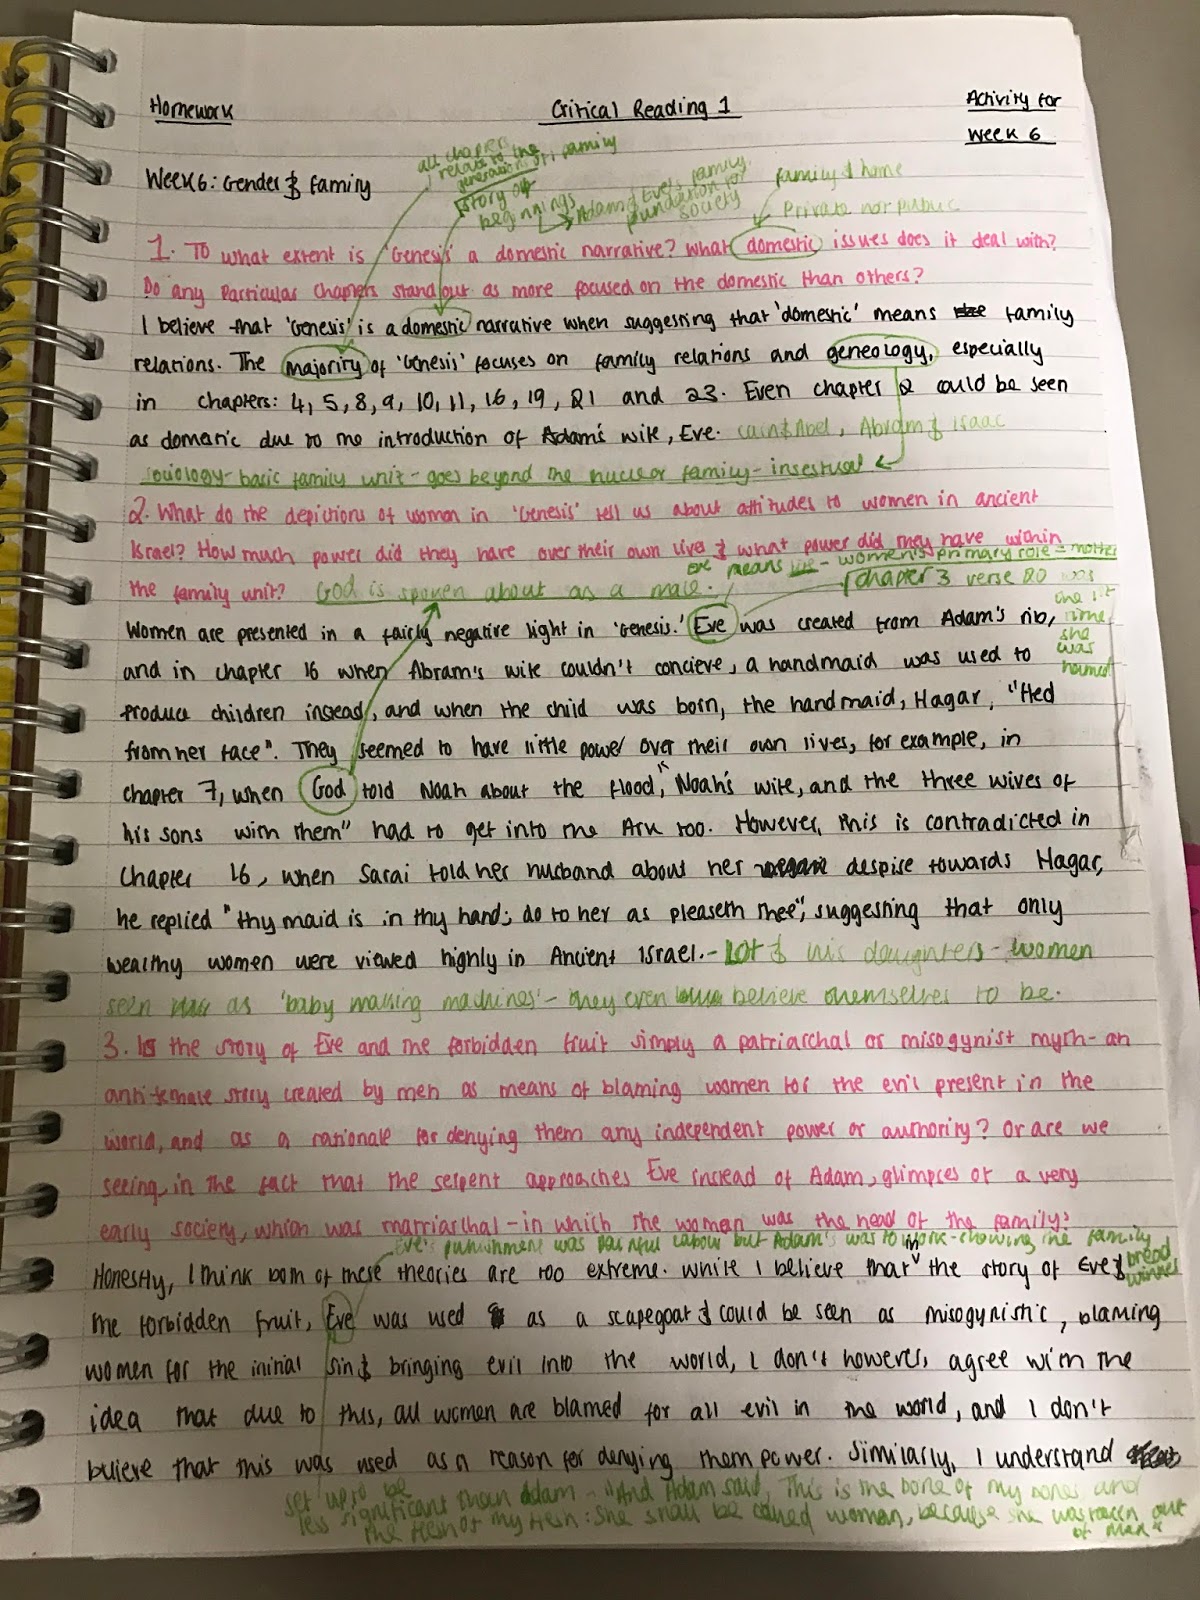 Homework
Critical Reading 1
Activity for
Week 6
Week 6: Gender & Family
all chapters
relate to the
generations of 1 family
story of
beginnings
Adam & Eve's family
foundation for
society
family & home
Private not public
1. To what extent is 'Genesis' a domestic narrative? What domestic issues does it deal with?
Do any Particular Chapters stand out as more focused on the domestic than others?
I believe that 'Genesis' is a domestic narrative when suggesting that 'domestic' means family
relations. The majority of 'Genesis' focuses on family relations and geneology, especially
in chapters: 4, 5, 8, 9, 10, 11, 16, 19, 21 and 23. Even chapter 2 could be seen
as domestic due to the introduction of Adam's wife, Eve. Cain & Abel, Abram & Isaac
sociology - basic family unit - goes beyond the nuclear family - insestual
2. What do the depictions of women in 'Genesis' tell us about attitudes to women in ancient
Israel? How much power did they have over their own lives & what power did they have within
Eve means life - women's primary role = mother
the family unit? God is spoken about as a male.
chapter 3 verse 20 was
the 1st
time
she
was
named
Women are presented in a fairly negative light in 'Genesis.' Eve was created from Adam's rib,
and in chapter 16 when Abram's wife couldn't concieve, a handmaid was used to
produce children instead, and when the child was born, the handmaid, Hagar, "fled
from her face". They seemed to have little power over their own lives, for example, in
chapter 7, when God told Noah about the flood, "Noah's wife, and the three wives of
his sons with them" had to get into the Ark too. However, this is contradicted in
Chapter 16, when Sarai told her husband about her despise towards Hagar,
he replied "thy maid is in thy hand; do to her as pleaseth thee", suggesting that only
wealthy women were viewed highly in Ancient Israel. - Lot & his daughters - women
seen as 'baby making machines' - they even believe themselves to be.
3. Is the story of Eve and the forbidden fruit simply a patriarchal or misogynist myth - an
anti-female story created by men as means of blaming women for the evil present in the
world, and as a rationale for denying them any independent power or authority? Or are we
seeing, in the fact that the serpent approaches Eve instead of Adam, glimpses of a very
early society, which was matriarchal - in which the woman was the head of the family?
Eve's punishment was painful labour but Adam's was to work - showing the family
bread
winner
Honestly, I think both of these theories are too extreme. While I believe that in the story of Eve &
the forbidden fruit, Eve was used as a scapegoat & could be seen as misogynistic, blaming
women for the initial sin & bringing evil into the world, I don't however, agree with the
idea that due to this, all women are blamed for all evil in the world, and I don't
believe that this was used as a reason for denying them power. Similarly, I understand
set up to be
less significant than Adam - "And Adam said, This is the bone of my bones, and
the flesh of my flesh: she shall be called woman, because she was taken out
of Man"